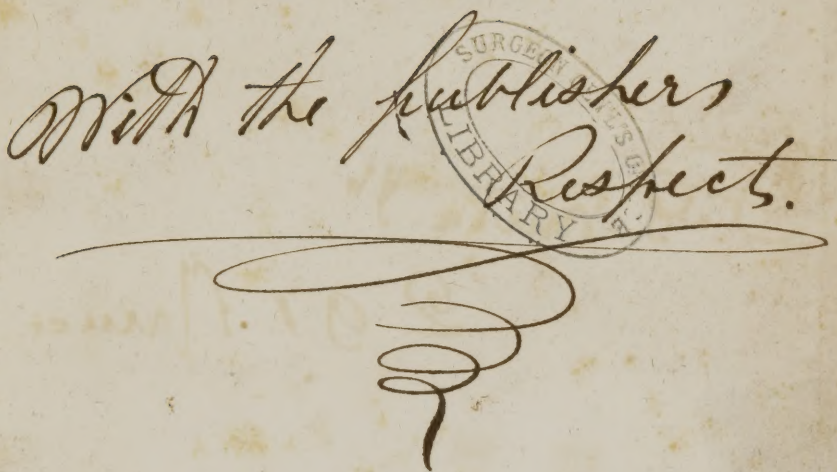 With the publishers
Respects.
SURGEON GEN'L'S OFFICE
LIBRARY